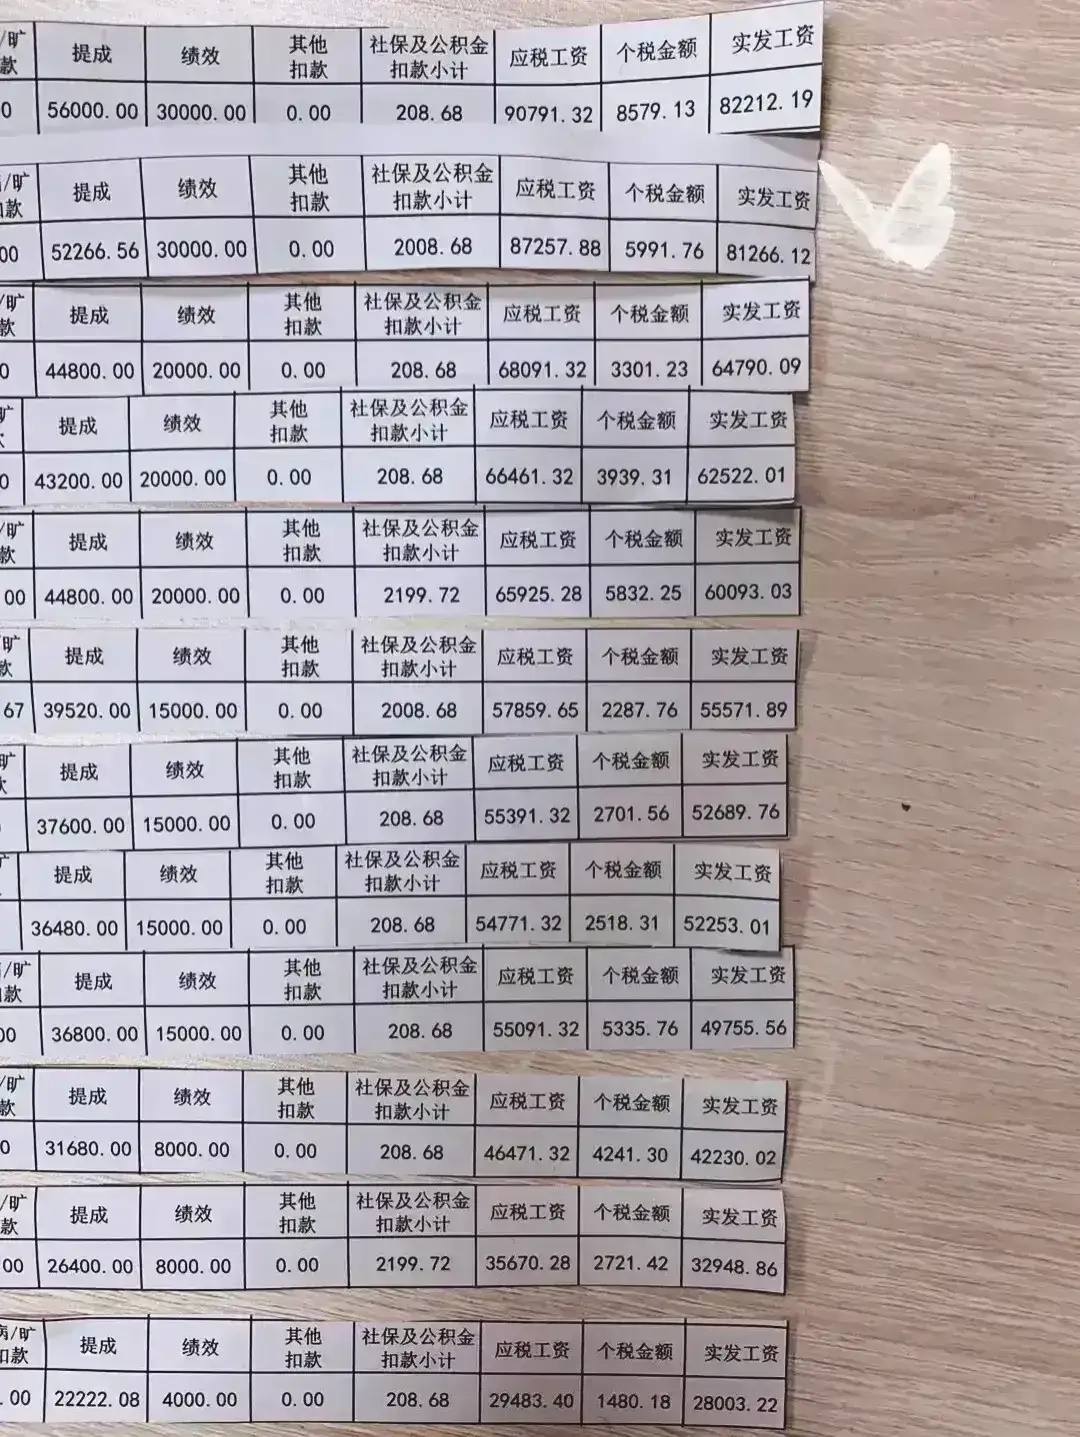 /旷 提成 绩效 其他 社保及公积金 应税工资 个税金额 实发工资
款 扣款 扣款小计
0 56000.00 30000.00 0.00 208.68 90791.32 8579.13 82212.19
/旷 提成 绩效 其他 社保及公积金 应税工资 个税金额 实发工资
款 扣款 扣款小计
00 52266.56 30000.00 0.00 2008.68 87257.88 5991.76 81266.12
/旷 提成 绩效 其他 社保及公积金 应税工资 个税金额 实发工资
款 扣款 扣款小计
0 44800.00 20000.00 0.00 208.68 68091.32 3301.23 64790.09
旷 提成 绩效 其他 社保及公积金 应税工资 个税金额 实发工资
扣款 扣款小计
0 43200.00 20000.00 0.00 208.68 66461.32 3939.31 62522.01
/旷 提成 绩效 其他 社保及公积金 应税工资 个税金额 实发工资
款 扣款 扣款小计
00 44800.00 20000.00 0.00 2199.72 65925.28 5832.25 60093.03
/旷 提成 绩效 其他 社保及公积金 应税工资 个税金额 实发工资
款 扣款 扣款小计
67 39520.00 15000.00 0.00 2008.68 57859.65 2287.76 55571.89
旷 提成 绩效 其他 社保及公积金 应税工资 个税金额 实发工资
扣款 扣款小计
37600.00 15000.00 0.00 208.68 55391.32 2701.56 52689.76
提成 绩效 其他 社保及公积金 应税工资 个税金额 实发工资
扣款 扣款小计
36480.00 15000.00 0.00 208.68 54771.32 2518.31 52253.01
/旷 提成 绩效 其他 社保及公积金 应税工资 个税金额 实发工资
款 扣款 扣款小计
00 36800.00 15000.00 0.00 208.68 55091.32 5335.76 49755.56
/旷 提成 绩效 其他 社保及公积金 应税工资 个税金额 实发工资
款 扣款 扣款小计
0 31680.00 8000.00 0.00 208.68 46471.32 4241.30 42230.02
/旷 提成 绩效 其他 社保及公积金 应税工资 个税金额 实发工资
款 扣款 扣款小计
00 26400.00 8000.00 0.00 2199.72 35670.28 2721.42 32948.86
病/旷 提成 绩效 其他 社保及公积金 应税工资 个税金额 实发工资
扣款 扣款 扣款小计
.00 22222.08 4000.00 0.00 208.68 29483.40 1480.18 28003.22